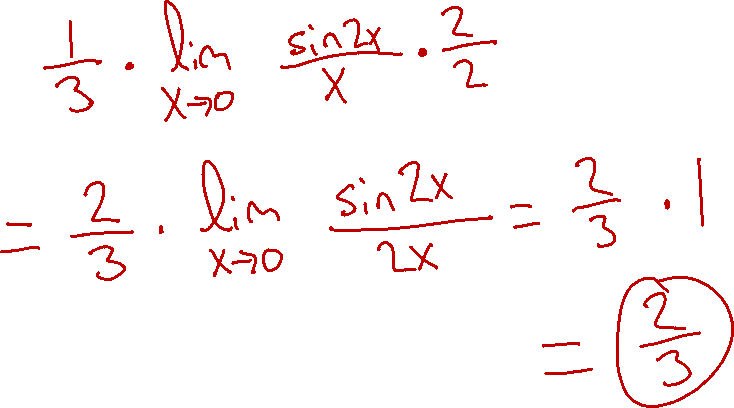 1/3 · lim x→0 sin2x/x · 2/2
= 2/3 · lim x→0 sin2x/2x = 2/3 · 1
= 2/3